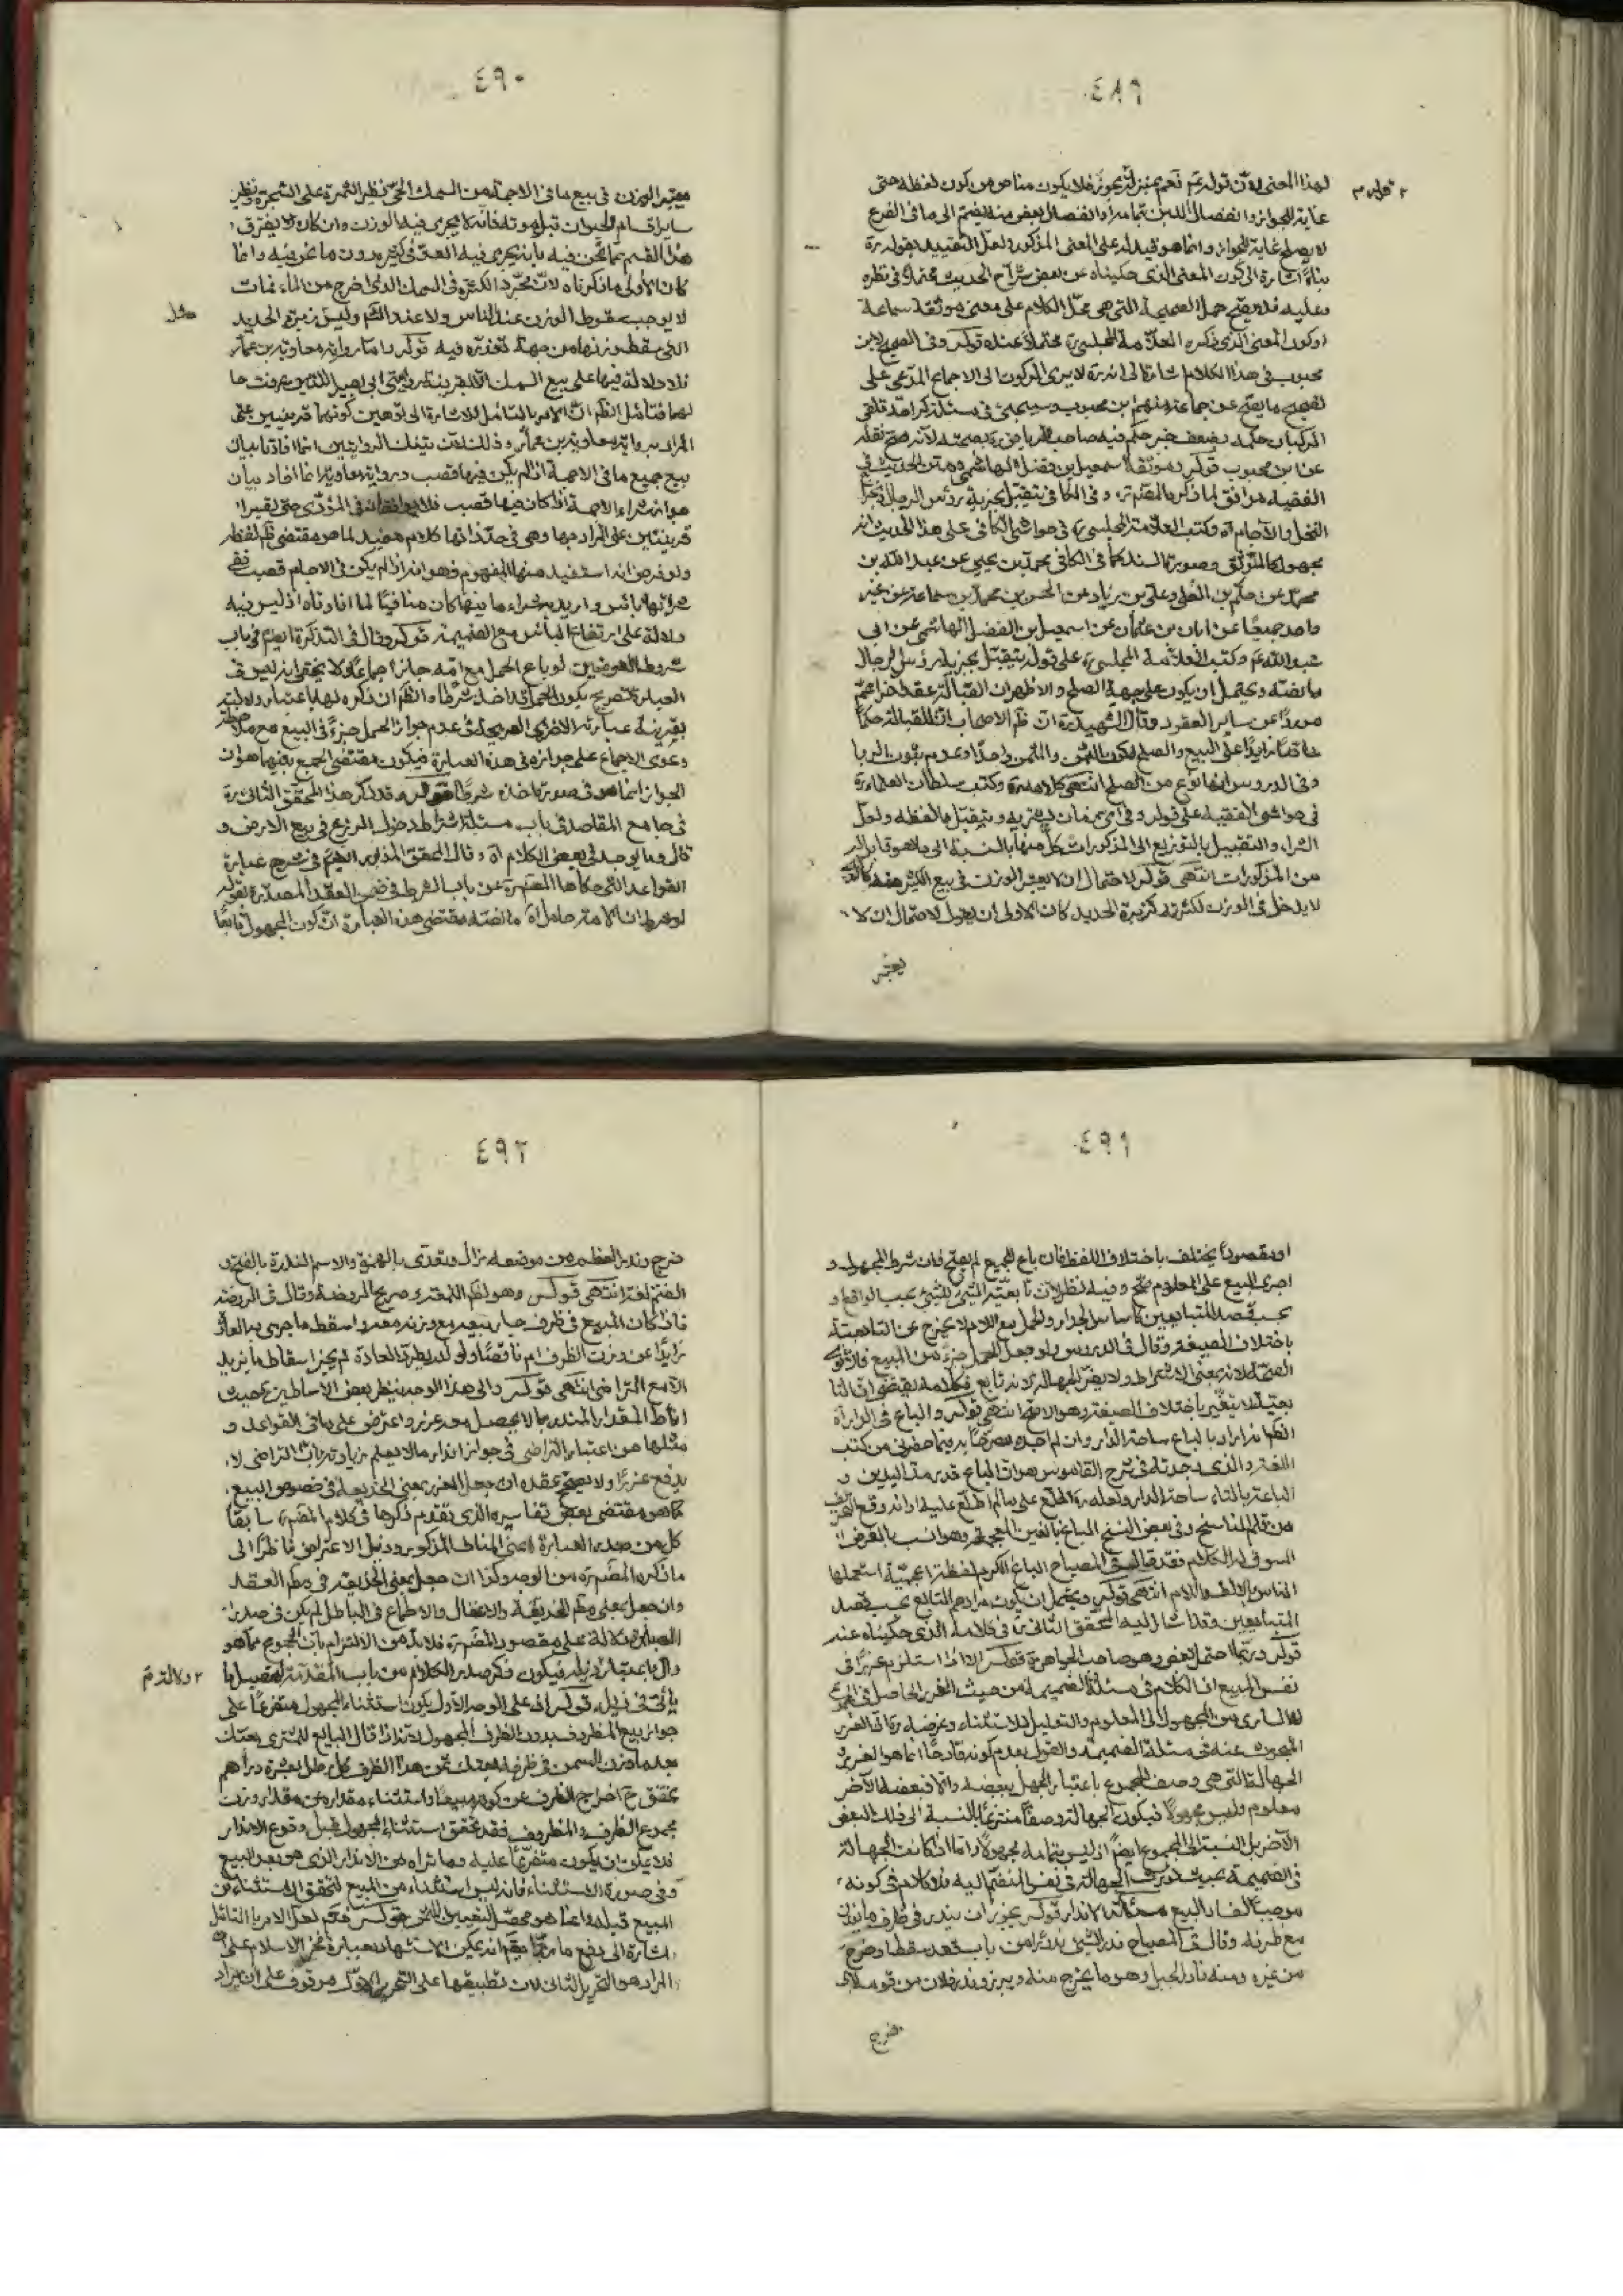 ٤٨٩
لهذا المعنى لأن قوله نعم بمنزلة يجوز فلا يكون مناص من كون لفظة حتى
غاية للجواز وانفصال اللبن بتمامه او انفصال بعض منه ينضم الى ما في الضرع
لا يصلح غاية للجواز وانما هو قيد له على المعنى المذكور ولعل التقييد بقوله
بناءً اشارة الى كون المعنى الذي حكيناه عن بعض شراح الحديث محتملاً في نظره
وعليه فلا يصح حمل الصحيحة التي هي محل الكلام على معنى موثقة سماعة
او كون المعنى الذي ذكره العلامة المجلسي محتملاً عنده قوله وفي الصحيح لابن
محبوب في هذا الكلام اشارة الى انه لا يرى الركون الى الاجماع المدعى على
تصحيح ما يصح عن جماعة منهم ابن محبوب وسيجيء في مسئلة
عن ابن محبوب قوله وموثقة اسمعيل بن فضل الهاشمي متن الحديث في
الفقيه موافق لما ذكره المصنف وفي الكافي يتقبل بجزية رؤس الرجال وبخراج
النخل والآجام اه وكتب العلامة المجلسي في حواشي الكافي على هذا الحديث انه
مجهول كالموثق وصورة السند كما في الكافي محمد بن يحيى عن عبد الله بن
محمد عن علي بن الحكم وعن الحسن بن محمد بن سماعة عن غير
واحد جميعاً عن ابان بن عثمان عن اسمعيل بن الفضل الهاشمي عن ابى
عبد الله وكتب العلامة المجلسي على قوله يتقبل بجزية رؤس الرجال
ما نصه ويحتمل ان يكون على جهة الصلح والاظهر ان القبالة عقد
عن ساير العقود وقال الشهيد ان ظاهر الاصحاب ان للقبالة حكماً
خاصاً زايداً على البيع والصلح لكون الثمن والمثمن واحداً وعدم ثبوت الربا
وفي الدروس انها نوع من الصلح انتهى كلامه وكتب سلطان العلماء
في حواشي الفقيه على قوله وفي اي زمان يشتريه ويتقبل ما لفظه ولعل
الشراء والتقبيل بالتوزيع الى المذكورات كل منها بالنسبة الى ما هو قابل له
من المذكورات انتهى قوله لاحتمال ان لا يعتبر الوزن في بيع الكثير منه
لا يدخل في الوزن لكثرته كزبرة الحديد كان الاولى ان يقول لاحتمال ان لا
يعتبر
٤٩٠
معتبر الوزن في بيع ما في الاجمة من السمك الحي نظير الثمرة على الشجرة ونظير
ساير اقسام الحيوان قبل موته فانه لا يجري فيه الوزن وان كان لا يفترق
هذا القسم عما نحن فيه بانه يجري فيه العد في كثير بدون ما نحن فيه وانما
كان الاولى ما ذكرناه لان مجرد الكثرة في السمك الذي اخرج من الماء فمات
لا يوجب سقوط الوزن عند الناس ولا عند الشرع وليس زبرة الحديد
التي سقط وزنها من جهة تعذره فيه قوله واما رواية معاوية بن عمار
فلا دلالة فيها على بيع السمك الا بقرينة روايتي ابى بصير اللتين عرفت حا
لهما فتأمل الظاهر ان الامر بالتأمل للاشارة الى توهين كونهما قرينتين على
المراد برواية معاوية بن عمار وذلك لان تينك الروايتين انما افادتا بيان
بيع جميع ما في الاجمة اذا لم يكن فيها قصب ورواية معاوية انما افاد بيان
جواز شراء الاجمة اذا كان فيها قصب في المؤدى حتى تصيرا
قرينتين على المراد بها وهي في حد ذاتها كلام مفيد لما هو مقتضى ظاهر لفظه
ولو فرض انه استفيد منها المفهوم وهو انه اذا لم يكن في الاجام قصب ففي
شرائها باس واريد شراء ما فيها كان منافياً لما افادتاه اذ ليس فيه
دلالة على ارتفاع البأس مع الضميمة قوله وقال في التذكرة ايضاً في باب
شروط العوضين لو باع الحمل مع امه جاز اجماعاً ولا يخفى انه ليس في
العبارة تصريح بكون الحمل شرطاً والظاهر ان ذكره لها باعتبار دلالته
بقرينة عبارته الاخرى الصريحة في عدم جواز الحمل جزءً في البيع مع ملاحظة
دعوى الاجماع على جوازه في هذه العبارة فيكون مقتضى الجمع بينهما هو ان
الجواز انما هو في صورة اخذه شرطاً قوله وقد ذكر هذا المحقق الثاني
في جامع المقاصد في باب مسئلة اشتراط دخول الزرع في بيع الارض و
قال وما يوجد في بعض الكلام اه وقال المحقق المذكور ايضاً في شرح عبارة
القواعد التي حكاها المصنف عن باب الشرط في ضمن العقد المصدرة بقوله
لو شرط ان الامة حامل اه ما نصه مقتضى هذه العبارة ان كون المجهول تابعاً
٤٩١
او مقصوداً يختلف باختلاف اللفظ فان باع الجميع لم يصح فان شرط المجهول و
اجرى البيع على المعلوم صح وفيه نظر لان تابعية الشيء للشيء بحسب الواقع او
بحسب قصد المتبايعين كاساس الجدار والحمل مع الام لا يخرج عن التابعية
باختلاف الصيغة وقال في الدروس ولو جعل الحمل جزءً من المبيع فالاقوى
الصحة لانه بمعنى الاشتراط ولا يضر الجهالة لانه تابع فكلامه يقتضي ان التا
بعية لا يتغير باختلاف الصيغة وهو الاصح انتهى قوله والباغ في الدار اه
الظاهر انه اراد بالباغ ساحة الدار وان لم اجده مصرحاً به فيما حضرني من كتب
اللغة والذي وجدته في شرح القاموس هو ان الباع قدر مد اليدين و
الباعة بالتاء ساحة الدار ولعله اطلع على ما لم اطلع عليه او انه وقع التحريف
من قلم الناسخ وفي بعض النسخ الباغ بالغين المعجمة وهو انسب بالغرض
المسوق له الكلام فقد قال في المصباح الباغ الكرم لفظة اعجمية استعملها
الناس بالالف واللام انتهى قوله ويحتمل ان يكون مرادهم التابع بحسب قصد
المتبايعين وقد اشار اليه المحقق الثاني في كلامه الذي حكيناه عند
قوله وربما احتمل بعض وهو صاحب الجواهر قوله الا اذا استلزم غرراً في
نفس المبيع اذ الكلام في مسئلة الضميمة من حيث الغرر الحاصل في المجموع
لا الساري من المجهول الى المعلوم والتعليل للاستثناء وغرضه ان الغرر
المبحوث عنه في مسئلة الضميمة والقول بعدم كونه قادحاً انما هو الغرر و
الجهالة التي هي وصف المجموع باعتبار الجهل ببعضه والا فبعضه الآخر
معلوم وليس مجهولاً فيكون الجهالة وصفاً منتزعاً بالنسبة الى ذلك البعض
الآخر بل بالنسبة الى المجموع ايضاً اذ ليس بتمامه مجهولاً واما اذا كانت الجهالة
في الضميمة بحيث تورث الجهالة في نفس المنضم اليه فلا كلام في كونه
موجباً لفساد البيع مسئلة الانذار قوله يجوز ان يندر في ظرف ما يوزن
مع ظرفه وقال في المصباح ندر الشيء ندراً من باب قعد سقط او خرج
من غيره ومنه نادر الجبل وهو ما يخرج منه ويبرز وندر فلان من قومه
خرج
٤٩٢
خرج وندر العظم من موضعه زال ويتعدى بالهمزة والاسم الندرة بالفتح و
الضم لغة انتهى قوله وهو لظاهر الفقهاء وصريح الروضة وقال في الروضة
فاذا كان المبيع في ظرف جاز بيعه مع وزنه معه واسقط ما جرى به العادة
زايداً عن وزن الظرف ام ناقصاً ولو لم يطرد العادة لم يجز اسقاط ما يزيد
الا مع التراضي انتهى قوله والى هذا الوجه ينظر بعض الاساطين حيث
اناط المقدار المندر بما لا يحصل معه غرر واعترض على ما في القواعد و
مثلها من اعتبار التراضي في جواز اندار ما لا يعلم زيادته بان التراضي لا
يدفع غرراً ولا يصحح عقداً ان جعل الغرر بمعنى الخديعة في خصوص البيع
كما هو مقتضى بعض تفاسيره الذي تقدم ذكرها في كلام المصنف سابقاً
كل من صدر العبارة اعنى المناط المذكور وذيل الاعتراض ناظراً الى
ما ذكره المصنف من الوجه وكذا ان جعل بمعنى الخديعة في حكم العقد
وان جعل بمعنى حكم الخديعة والاغفال والاطماع في الباطل لم يكن في صدر
العبارة دلالة على مقصود المصنف فلا بد من الالتزام بان المجموع مما هو
دال باعتبار ذيله فيكون ذكر صدر الكلام من باب المقدمة لتحصيل ما
يأتي في ذيله قوله اذ على الوجه الاول يكون استثناء المجهول متفرعاً على
جواز بيع المظروف بدون الظرف المجهول لانه اذا قال البايع للمشتري بعتك
بعد ما وزن السمن في ظرفه بعتك سمن هذا الظرف كل رطل بعشرة دراهم
تحقق ح اخراج الظرف عن كونه مبيعاً واستثناء مقداره من مقدار وزن
مجموع الظرف والمظروف فقد تحقق استثناء المجهول قبل وقوع الاندار
فلا يمكن ان يكون متفرعاً عليه وما تراه من الاندار الذي هو بعد البيع
وفي صورة الاستثناء فانه ليس استثناء من المبيع لتحقق الاستثناء من
المبيع قبله وانما هو محصل لتعيين الثمن قوله فافهم لعل الامر بالتأمل
اشارة الى دفع ما ربما يتوهم انه يمكن الاستشهاد بعبارة فخر الاسلام على ان
المراد هو التحرير الثاني لان تطبيقها على التحرير الاول موقوف على ان يراد